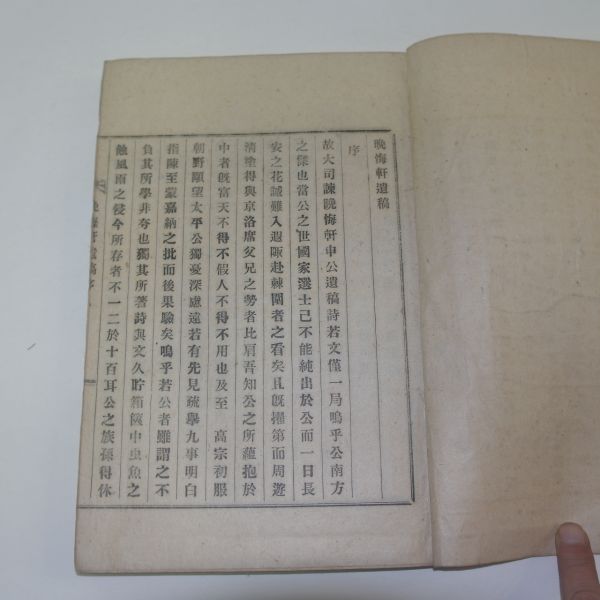 晚悔軒遺稿
序
故大司諫晚悔軒申公遺稿詩若文僅一局嗚乎公南方
之傑也當公之世國家選士已不能純出於公而一日長
安之花誠難入遐陬赴棘圍者之看矣且旣擢第而周遊
淸塗得與京洛席父兄之勢者比肩吾知公之所蘊抱於
中者旣富天不得不假人不得不用也及至 高宗初服
朝野顒望太平公獨憂深慮遠若有先見疏擧九事明白
指陳至蒙嘉納之批而後果驗矣嗚乎若公者雖謂之不
負其所學非夸也獨其所著詩與文久貯箱篋中虫魚之
蝕風雨之侵今所存者不一二於十百耳公之族孫得休
晚悔軒遺稿序